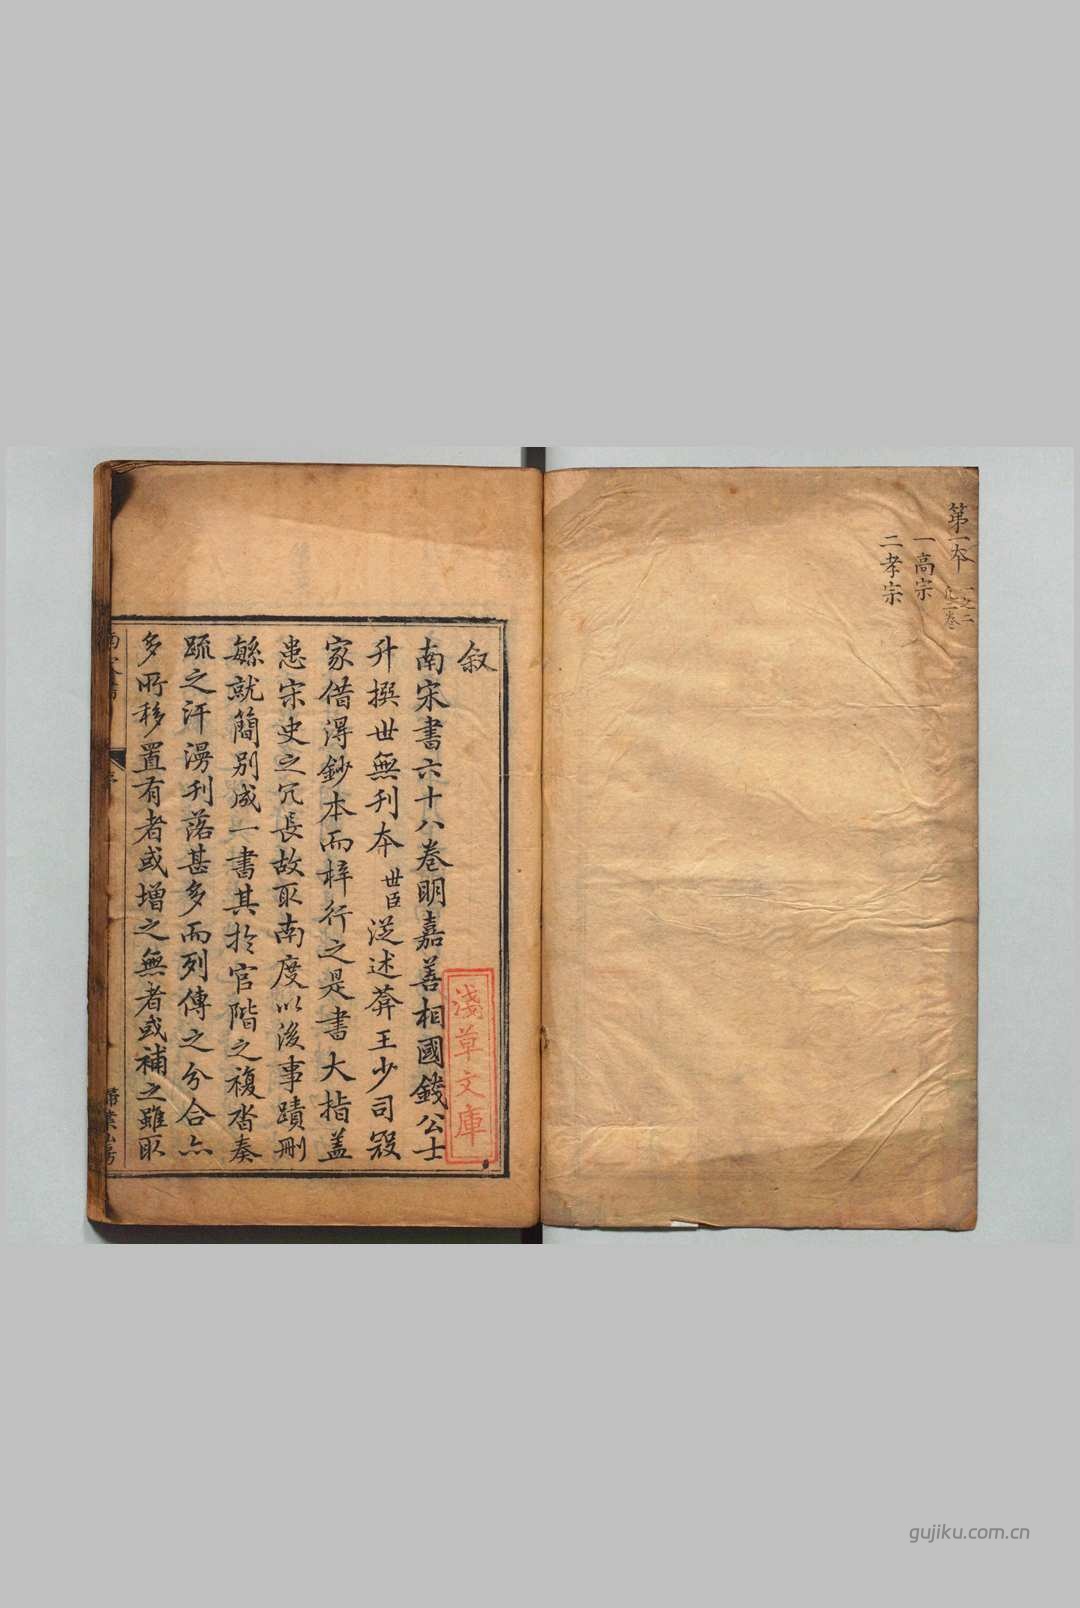 第一本
一之二
凡二卷
一高宗
二孝宗
叙
南宋書六十八卷明嘉善相國錢公士
升撰世無刊本世臣従述菴王少司寇
家借得鈔本而梓行之是書大指蓋
患宋史之冗長故取南度以後事蹟刪
緐就簡別成一書其扵官階之複沓奏
疏之汗漫刊落甚多而列傳之分合亦
多所移置有者或增之無者或補之雖取
淺草文庫
南宋書
序
掃葉山房
gujiku.com.cn